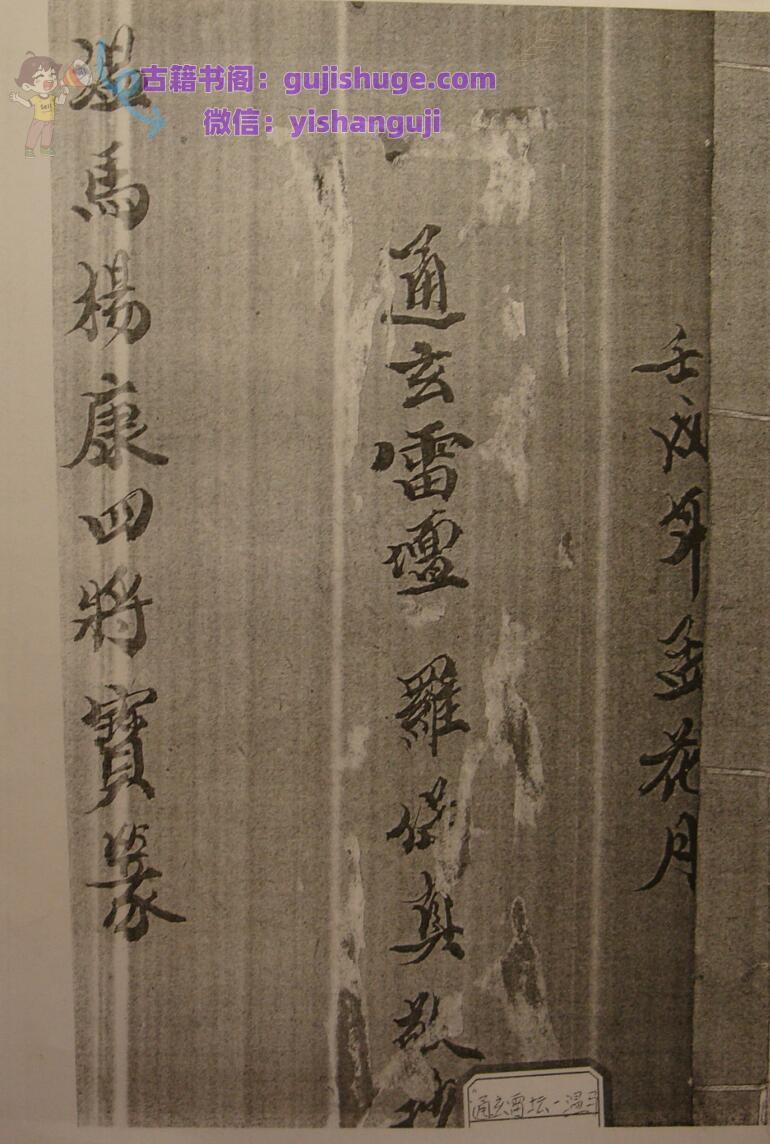 古籍书阁：gujishuge.com
微信：yishanguji
壬戌年孟花月
通玄雷壇 羅 真敬抄
溫馬楊康四將寶篆
通玄雷坛一温